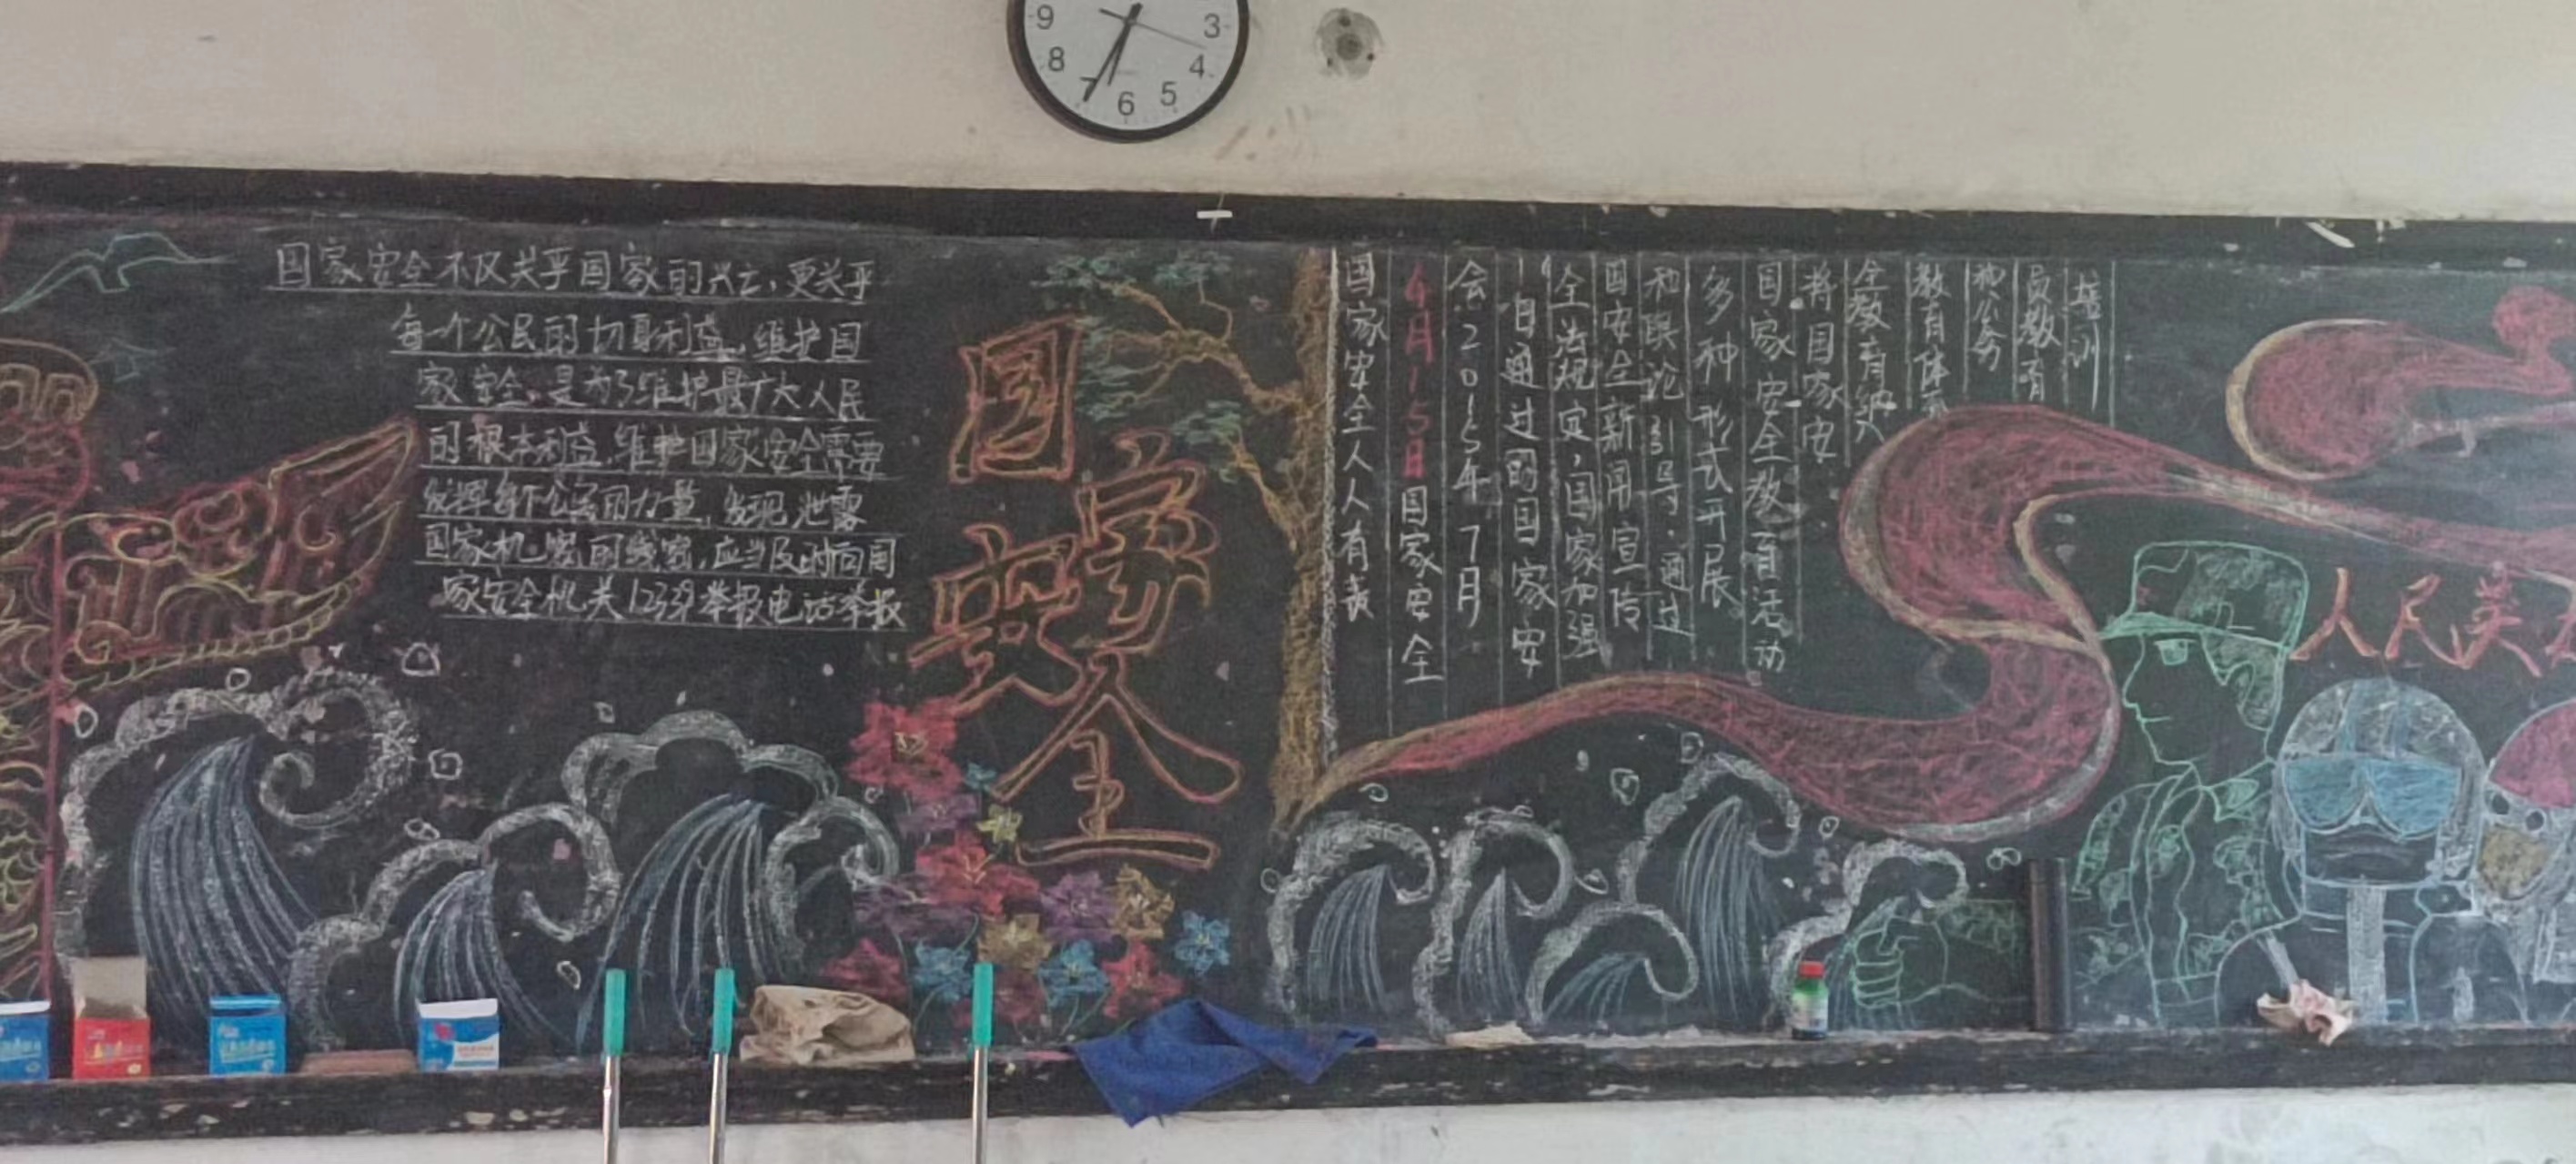 9
8
7
6
5
4
3
国家安全不仅关乎国家的兴亡,更关乎
每一个公民的切身利益,维护国
家安全,是为了维护最广大人民
的根本利益,维护国家安全需要
发挥每个公民的力量,发现泄露
国家机密的线索,应当及时向国
家安全机关12339举报电话举报
国家安全
国家安全人人有责
4月15日国家安全
会2015年7月
1日通过的国家安
全法规定,国家加强
国安全新闻宣传
和舆论引导,通过
多种形式开展
国家安全教育活动
将国家安
全教育纳入
教育体系
和公务
员教育
培训
人民美